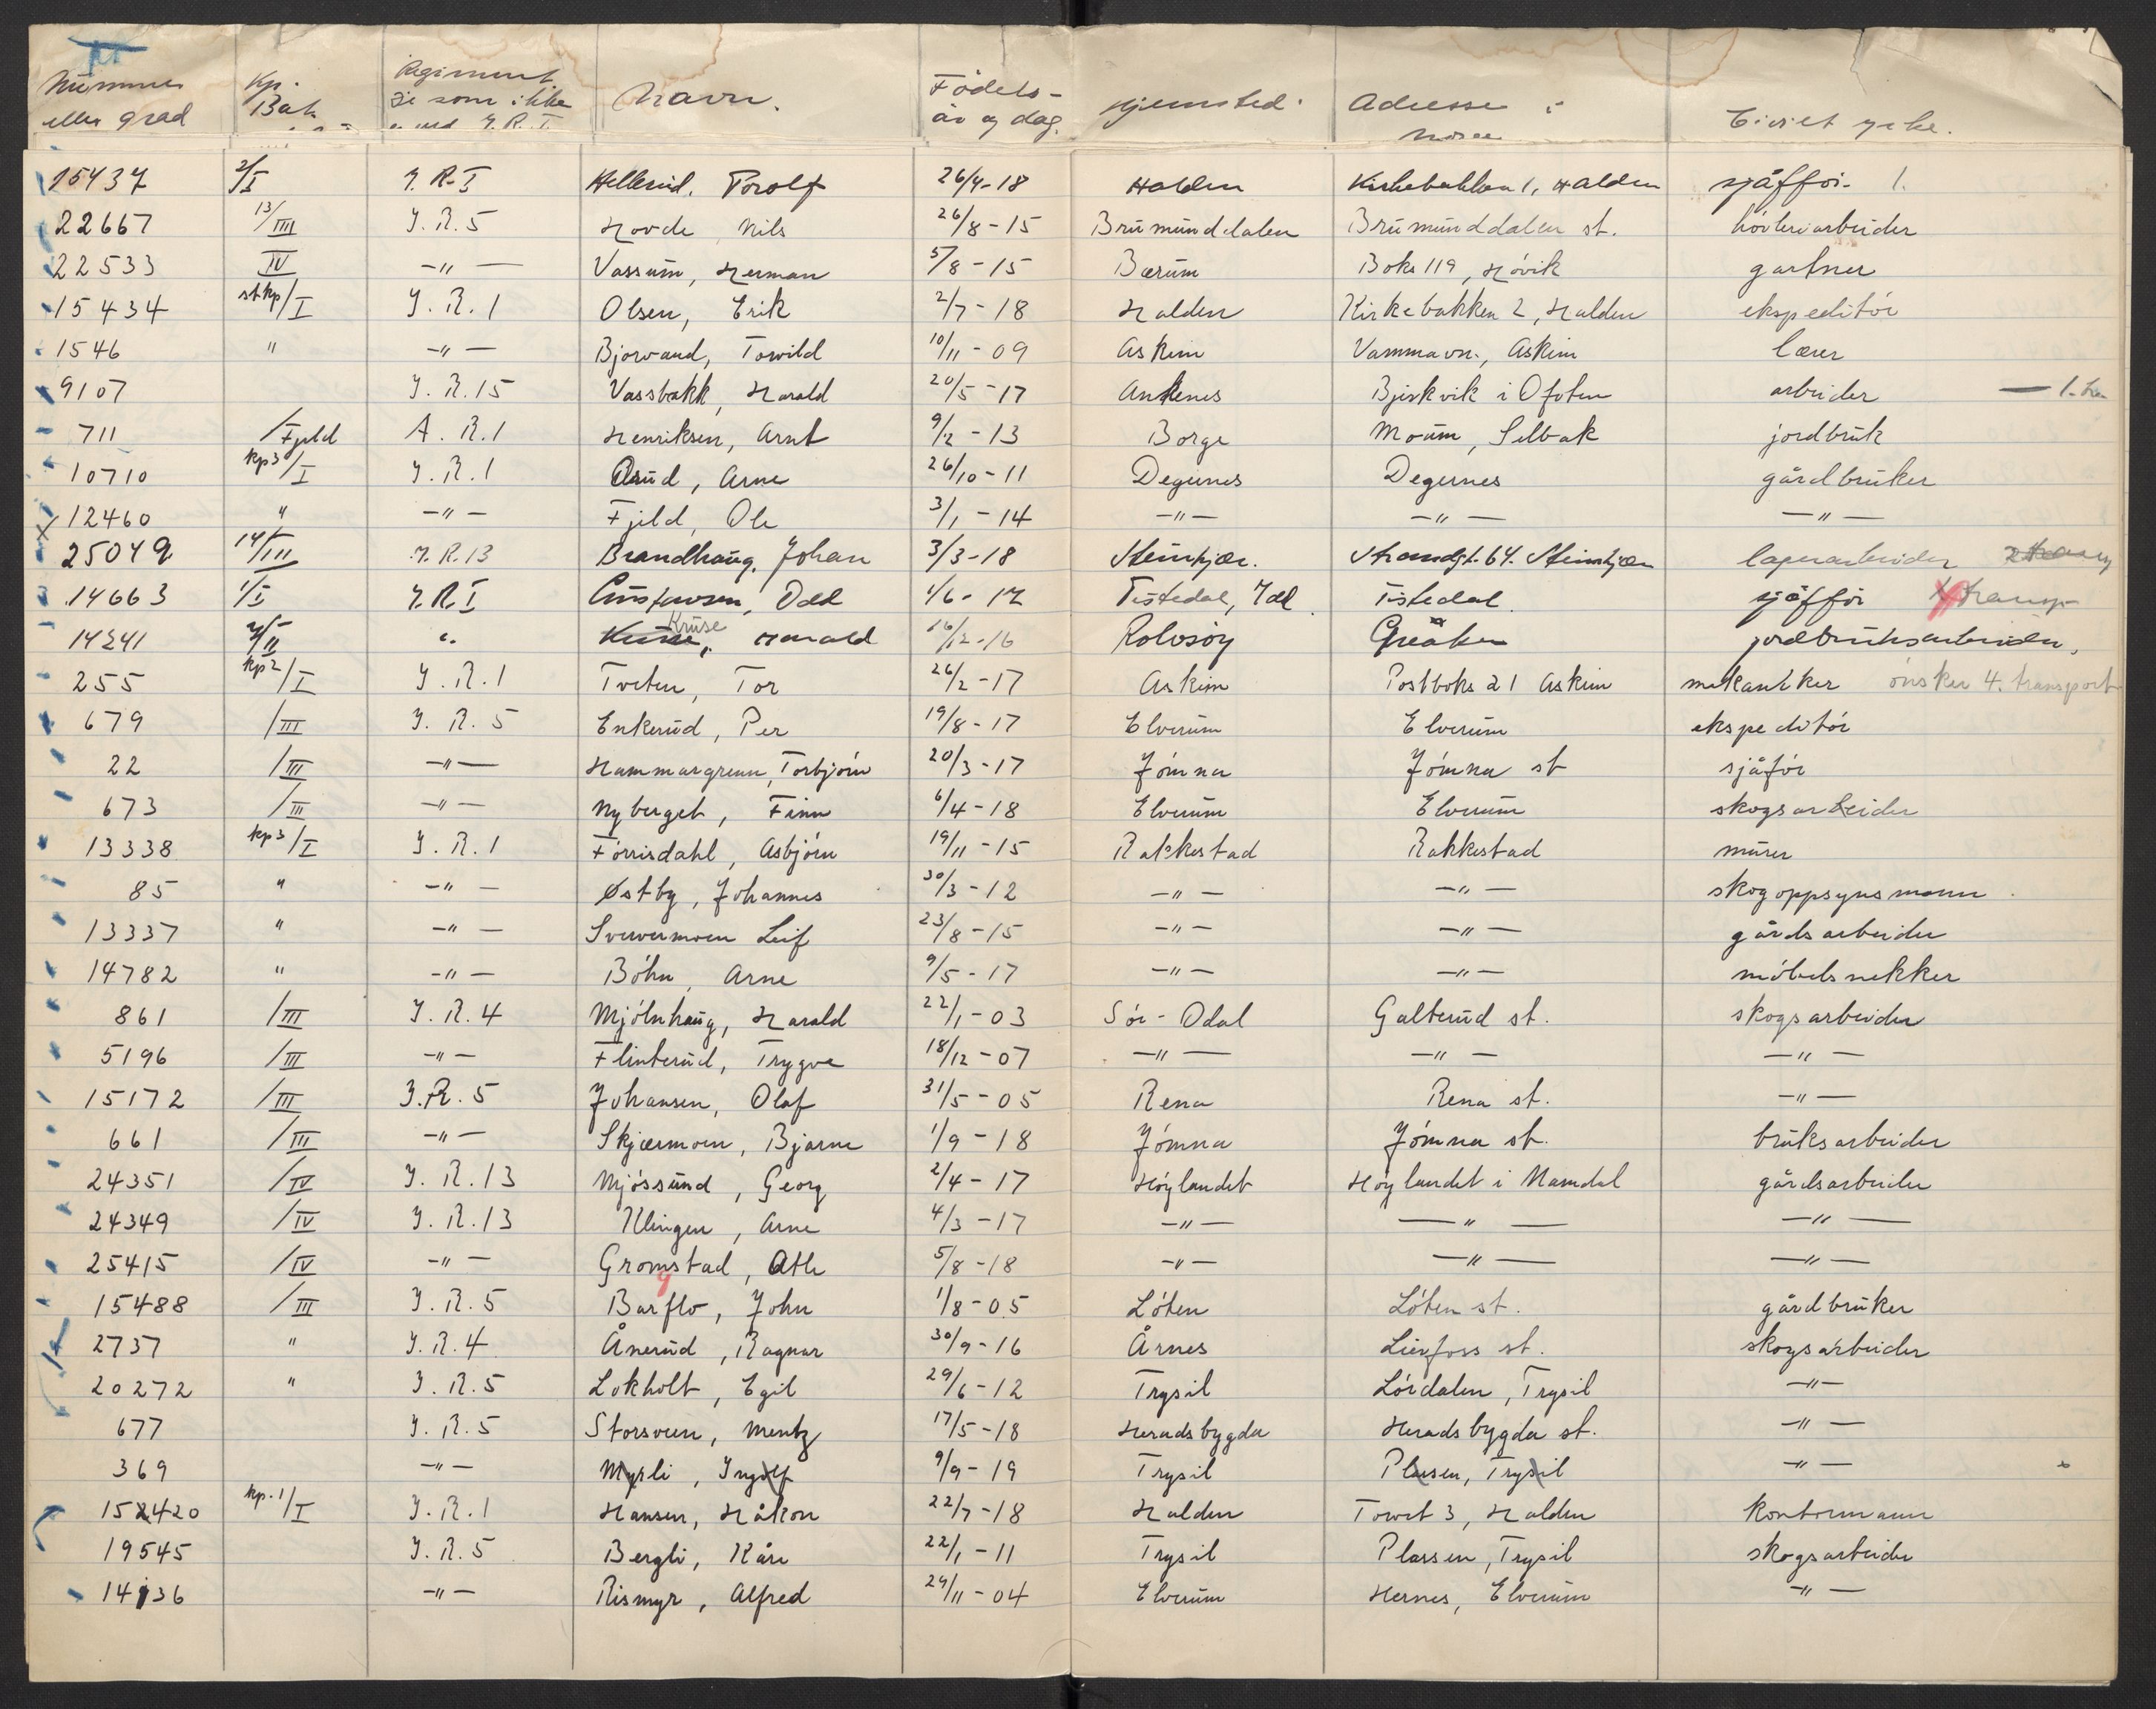 Nummer eller grad | Kp. Bat. | Regiment de som ikke er ved I.R.I. | Navn. | Fødels- år og dag. | Hjemsted. | Adresse i Norge | Civilt yrke.
15437 | 2/I | I.R.I | Hellerud. Torolf | 26/4-18 | Halden | Kirkebakken 1, Halden | sjåffør. 1.
22667 | 13/III | I.R.5 | Hovde, Nils | 26/8-15 | Brumunddalen | Brumunddalen st. | høvleriarbeider
22533 | IV | -"- | Vassum, Herman | 5/8-15 | Bærum | Boks 119, Høvik | gartner
15434 | stkp/I | I.R.1 | Olsen, Erik | 2/7-18 | Halden | Kirkebakken 2, Halden | ekspeditør
1546 | " | -"- | Bjorvand, Torvild | 10/11-09 | Askim | Vammavn., Askim | lærer
9107 | | I.R.15 | Vassbakk, Harald | 20/5-17 | Ankenes | Bjerkvik i Ofoten | arbeider
711 | /Fjeld | A.R.1 | Henriksen, Arnt | 9/2-13 | Borge | Moum, Selbak | jordbruk
10710 | kp3/I | I.R.1 | Åsrud, Arne | 26/10-11 | Degernes | Degernes | gårdbruker
12460 | " | -"- | Fjeld, Ole | 3/1-14 | -"- | -"- | -"-
25049 | 14/III | I.R.13 | Brandhaug, Johan | 3/3-18 | Steinkjær. | Strandgt. 64. Steinkjær | lagerarbeider
14663 | 1/I | I.R.I | Gustavsen, Odd | 1/6-17 | Tistedal, Idd. | Tistedal. | sjåffør transp
14241 | /II | " | Kruse, Harald | 16/12-16 | Rolvsøy | Greåker | jordbruksarbeider.
255 | kp2/I | I.R.1 | Tveten, Tor | 26/2-17 | Askim | Postboks 21 Askim | mekaniker ønsker 4. transport
679 | /III | I.R.5 | Enkerud, Per | 19/8-17 | Elverum | Elverum | ekspeditør
22 | /III | -"- | Hammargrenn, Torbjørn | 20/3-17 | Jømna | Jømna st | sjåfør
673 | /III | -"- | Nyberget, Finn | 6/4-18 | Elverum | Elverum | skogsarbeider
13338 | kp3/I | I.R.1 | Førrisdahl, Asbjørn | 19/11-15 | Rakkestad | Rakkestad | murer
85 | " | -"- | Østby, Johannes | 30/3-12 | -"- | -"- | skogoppsynsmann
13337 | " | -"- | Sververmoen Leif | 23/8-15 | -"- | -"- | gårdsarbeider
14782 | " | -"- | Bøhn, Arne | 9/5-17 | -"- | -"- | møbelsnekker
861 | /III | I.R.4 | Mjølnhaug, Harald | 22/1-03 | Sør-Odal | Galterud st. | skogsarbeider
5196 | /III | -"- | Flinterud, Trygve | 18/12-07 | -"- | -"- | -"-
15172 | /III | I.R.5 | Johansen, Olaf | 31/5-05 | Rena | Rena st. | -"-
661 | /III | -"- | Skjærmoen, Bjarne | 1/9-18 | Jømna | Jømna st. | bruksarbeider
24351 | /IV | I.R.13 | Mjøssund, Georg | 2/4-17 | Høylandet | Høylandet i Namdal | gårdsarbeider
24349 | /IV | I.R.13 | Klingen, Arne | 4/3-17 | -"- | -"- | -"-
25415 | /IV | -"- | Gromstad, Atle | 5/8-18 | -"- | -"- | -"-
15488 | /III | I.R.5 | Barflo, John | 1/8-05 | Løten | Løten st. | gårdbruker
2737 | " | I.R.4 | Ånerud, Ragnar | 30/9-16 | Årnes | Lierfoss st. | skogsarbeider
20272 | " | I.R.5 | Lokholt, Egil | 29/6-12 | Trysil | Lørdalen, Trysil | -"-
677 | | I.R.5 | Storsveen, Mentz | 17/5-18 | Heradsbygda | Heradsbygda st. | -"-
369 | | -"- | Myrli, Ingolf | 9/9-19 | Trysil | Plassen, Trysil | -"-
152420 | kp.1/I | I.R.1 | Hansen, Håkon | 22/7-18 | Halden | Torvet 3, Halden | kontormann
19545 | | I.R.5 | Bergli, Kåre | 22/1-11 | Trysil | Plassen, Trysil | skogsarbeider
14136 | | -"- | Rismyr, Alfred | 24/11-04 | Elverum | Hernes, Elverum | -"-